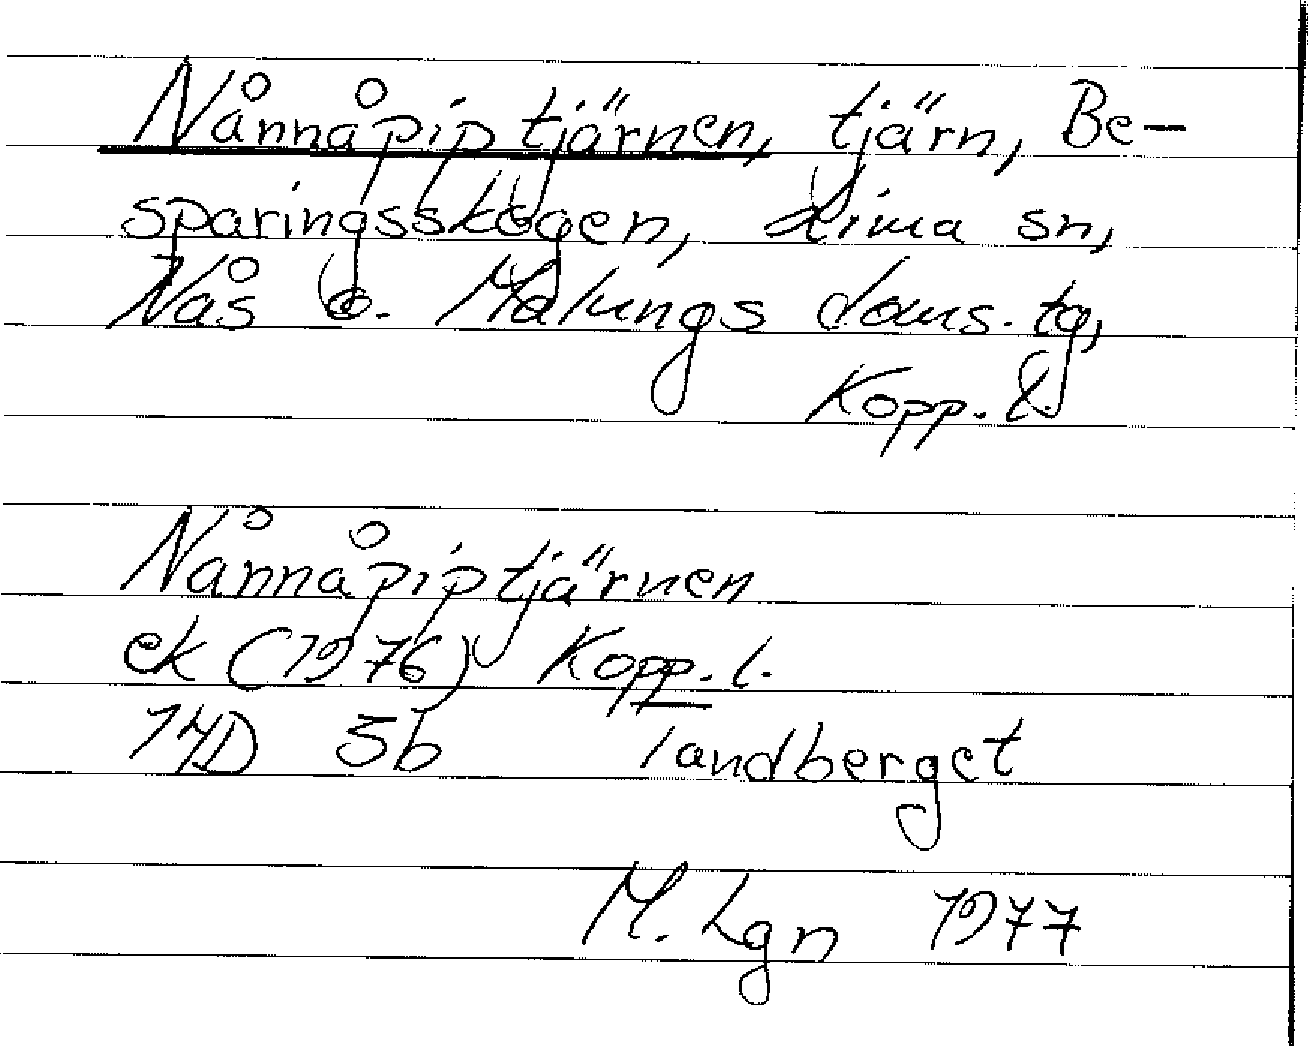 Nånnåpiptjärnen, tjärn, Be-
sparingsskogen, Lima sn,
Nås o. Malungs doms. tg,
Kopp. l.
Nånnåpiptjärnen
ek (1976) Kopp. l.
14D 5b landberget
M. Lgn 1977